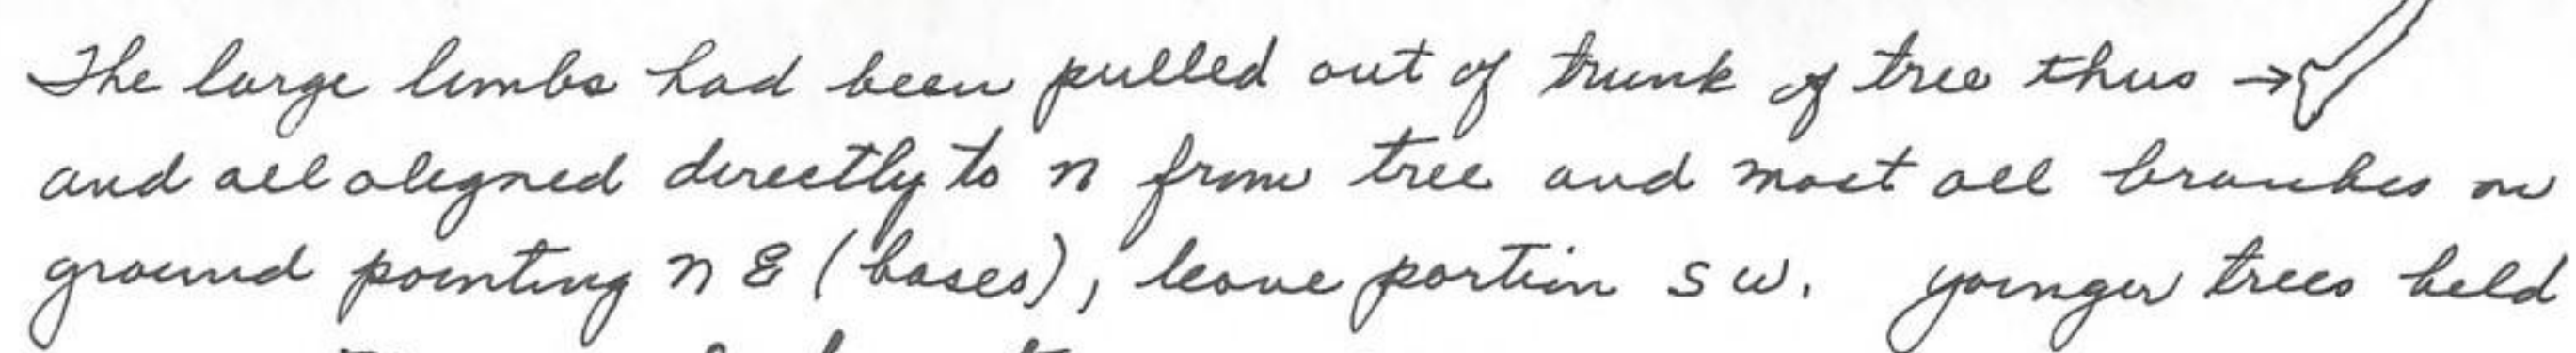 The large limbs had been pulled out of trunk of tree thus →
and all aligned directly to n from tree and most all branches on
ground pointing n E (bases), leave portion s w. younger trees held